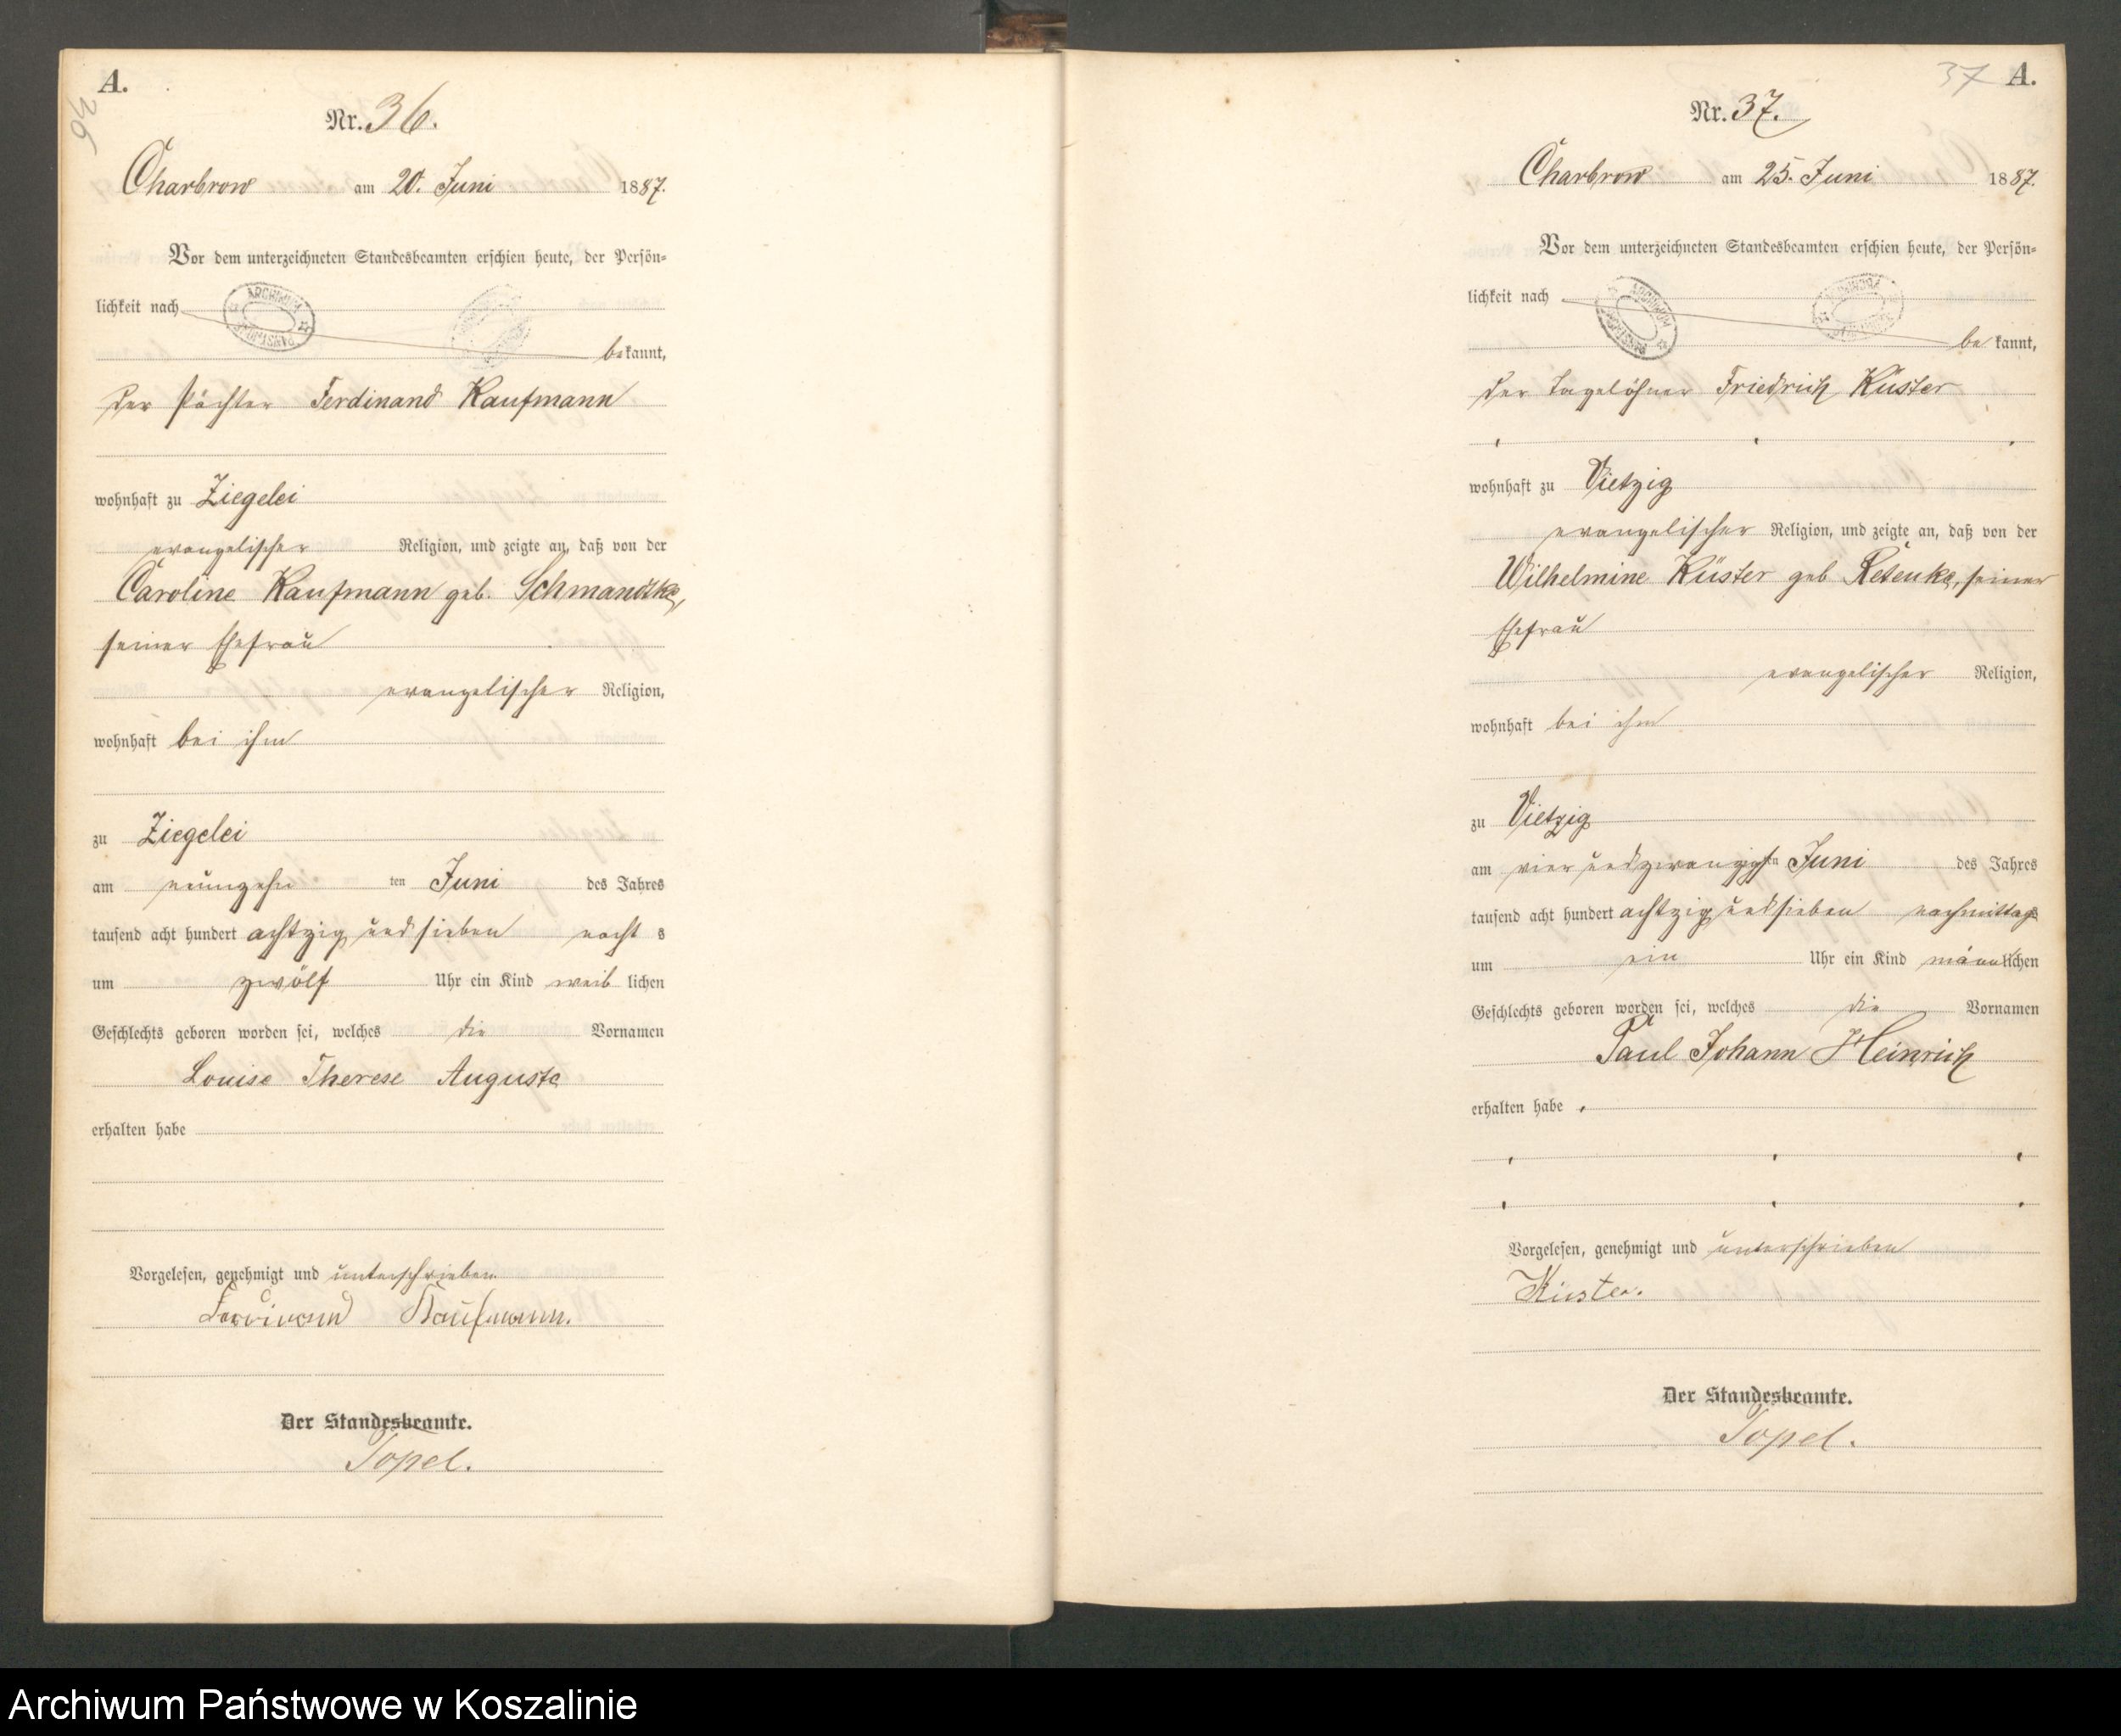 A.
36
Nr. 36.
Charbrow am 20. Juni 1887.
Vor dem unterzeichneten Standesbeamten erschien heute, der Persön-
lichkeit nach
bekannt,
der Pächter Ferdinand Kaufmann
wohnhaft zu Ziegelei
evangelischer Religion, und zeigte an, daß von der
Caroline Kaufmann geb. Schmandtke,
seiner Ehefrau
evangelischer Religion,
wohnhaft bei ihm
zu Ziegelei
am neunzehnten Juni des Jahres
tausend acht hundert achtzig und sieben nachts
um zwölf Uhr ein Kind weiblichen
Geschlechts geboren worden sei, welches die Vornamen
Louise Therese Auguste
erhalten habe
Vorgelesen, genehmigt und unterschrieben
Ferdinand Kaufmann.
Der Standesbeamte.
Topel.
37 A.
Nr. 37.
Charbrow am 25. Juni 1887.
Vor dem unterzeichneten Standesbeamten erschien heute, der Persön-
lichkeit nach
bekannt,
der Tagelöhner Friedrich Küster
wohnhaft zu Vietzig
evangelischer Religion, und zeigte an, daß von der
Wilhelmine Küster geb Retenke, seiner
Ehefrau
evangelischer Religion,
wohnhaft bei ihm
zu Vietzig
am vier und zwanzigsten Juni des Jahres
tausend acht hundert achtzig und sieben nachmittags
um ein Uhr ein Kind männlichen
Geschlechts geboren worden sei, welches die Vornamen
Paul Johann Heinrich
erhalten habe
Vorgelesen, genehmigt und unterschrieben
Küster.
Der Standesbeamte.
Topel.
ARCHIWUM PAŃSTWOWE
Archiwum Państwowe w Koszalinie